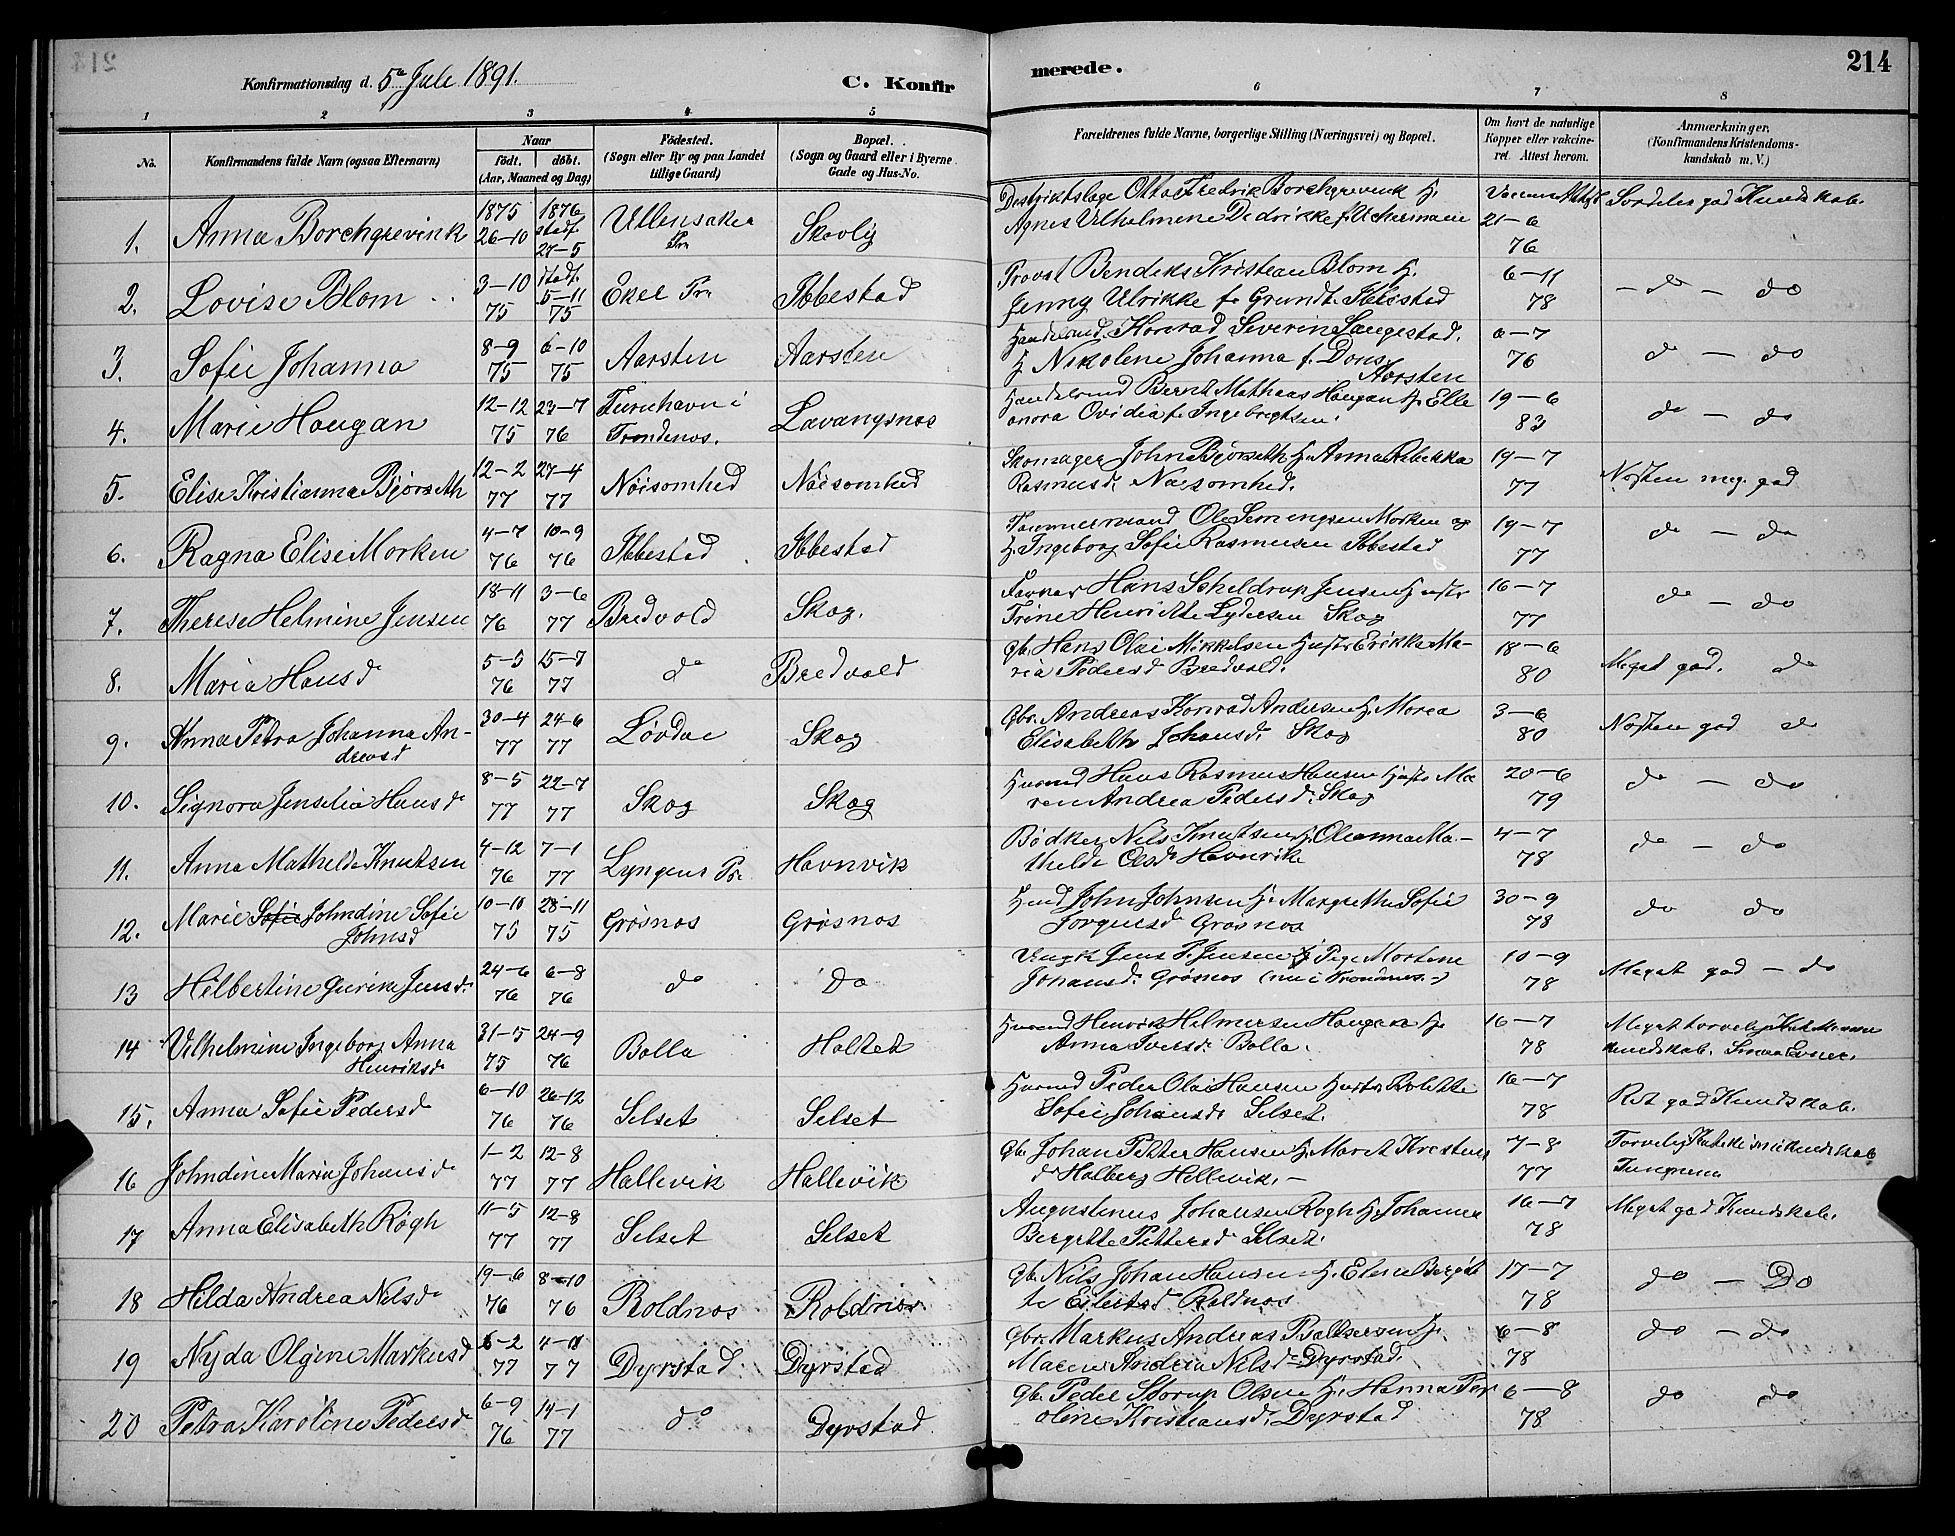 214
Konfirmationsdag d. 5te Jule 1891.
C. Konfirmerede.
1 2 3 4 5 6 7 8
No. Konfirmandens fulde Navn (ogsaa Efternavn) Naar født. døbt. (Aar, Maaned og Dag) Fødested. (Sogn eller By og paa Landet tillige Gaard) Bopæl. (Sogn og Gaard eller i Byerne Gade og Hus-No. Forældrenes fulde Navne, borgerlige Stilling (Næringsvei) og Bopæl. Om havt de naturlige Kopper eller vakcineret. Attest herom. Anmærkninger. (Konfirmandens Kristendomskundskab m. V.)
1. Anna Borchgrevink 1875 26-10 1876 stadf. 27-5 Ullensaker Pr. Skovly Distriktslæge Otto Fredrik Borchgrevink H.
Agnes Vilhelmine Didrikke f. 21-6 76 Særdeles god Kundskab.
2. Lovise Blom 3-10 75 stadf. 5-11 75 Eker Pr. Ibbestad Provst Bendiks Kristian Blom H.
Jenny Ulrikke f. Grundt. Ibbestad 6-11 78 - do - do
3. Sofie Johanna 8-9 75 6-10 75 Aarsten Aarsten Handelsmd. Konrad Severin Langestad.
H Nikoline Johanna f. Dons Aarsten 6-7 76 do - do
4. Marie Hougan 12-12 75 23-7 76 i Trondenos. Lavangsnos Handelsmd Bernt Mathias Hougan H. Elle
onora Ovidia f. Ingebrigtsen. 19-6 83 do - do
5. Elise Kristianna Bjørseth 12-2 77 27-4 77 Nöisomhed Nöisomhed Skomager John Bjørseth H. Anna Rebekka
Rasmusd. Nøisomhed. 19-7 77 Nesten meg. god
6. Ragna Elise Morken 4-7 76 10-9 76 Ibbestad Ibbestad Tømmermand Ole Morken og
H. Ingeborg Sofie Rasmusen Ibbestad 19-7 77 do - do
7. Therese Helmine Jensen 18-11 76 3-6 77 Bredvold Skog. Hans Scheldrup Jensen Hustr
Trine Henriette Lydersen Skog 16-7 77 do - do
8. Maria Hansd 5-5 76 15-7 77 do Bredvold Gb. Hans Olai Mikkelsen Hustr Erikka Ma-
ria Pedersd Bredvold. 18-6 80 Meget god. do
9. Anna Petra Johanna An-
dreasd 30-4 77 24-6 77 Løvdal Skog Gbr. Andreas Konrad Andersen H. Maria
Elisabeth Johansd. Skog 3-6 80 Nesten god do
10. Signora Jenselia Hansd 8-5 77 22-7 77 Skog Skog Husmd Hans Rasmus Hansen Hustr Ma
ren Andrea Pedersd. Skog 20-6 79 do - do
11. Anna Mathilde Knutsen 4-12 76 7-1 77 Lyngens Pr. Havnvik Bødker Nils Knutsen H. Oleanna Ma-
thilde Olsd. Havnvik 4-7 78 do - do
12. Marie Sofie Johndine Sofie
Johnsd 10-10 75 28-11 75 Grøsnos Grøsnos John Johnsen H. Margrethe Sofie
Grøsnos 30-9 78 do do
13 Hilbertine Jensd. 24-6 76 6-8 76 do Do Jens P. Jensen Mortine
Johansd. Grøsnos (nu i Trondenes.) 10-9 78 Meget god - do
14 Vilhelmine Ingeborg Anna
Henriksd 31-5 75 24-9 76 Bolla Holtet Husmd Henrik Helmersen Haugen H.
Anna Iversd. Bolla. 16-7 78 Meget torvelig
kundskab. Smaa Evner.
15. Anna Sofie Pedersd 6-10 76 26-12 76 Selset Selset Husmd Peder Olai Hansen Hustr
Sofie Johansd Selset. 16-7 78 Ret god Kundskab.
16 Johndine Maria Johansd 1-2 77 12-8 77 Hallevik Hallevik Gb. Johan Petter Hansen H. Maret Kristens
d. Halberg Hellevik. - 7-8 77 Torvelig
17 Anna Elisabeth Rögh 11-5 77 12-8 77 Selset Selset Augustinus Johansen Rogh H. Johanna
Bergitte Pettersd Selset. 16-7 78 Meget god Kundskab.
18 Hilda Andrea Nilsd 19-6 76 8-10 76 Roldnos Roldnos Gb. Nils Johan Hansen H. Elen Bergit
te Roldnos 17-7 78 do - Do
19 Nyda Olgine Markusd 6-2 77 4-11 77 Dyrstad Dyrstad Gbr. Markus Andreas H.
Maren Andrea Nilsd Dyrstad. 6-8 78 do - do
20 Petra Karoline Pedersd 6-9 76 14-1 77 do Dyrstad. Gb. Peder Storup Olsen H. Hanna Per
oline Kristiansd. Dyrstad 6-8 78 do do